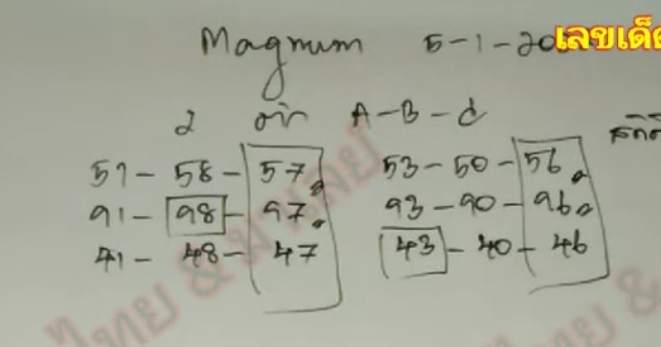 Magnum 5-1-20
เลขเด็
2 ตัว A-B-C
51-58-57 53-50-56
91-98-97 93-90-96
41-48-47 43-40-46
ไทย &